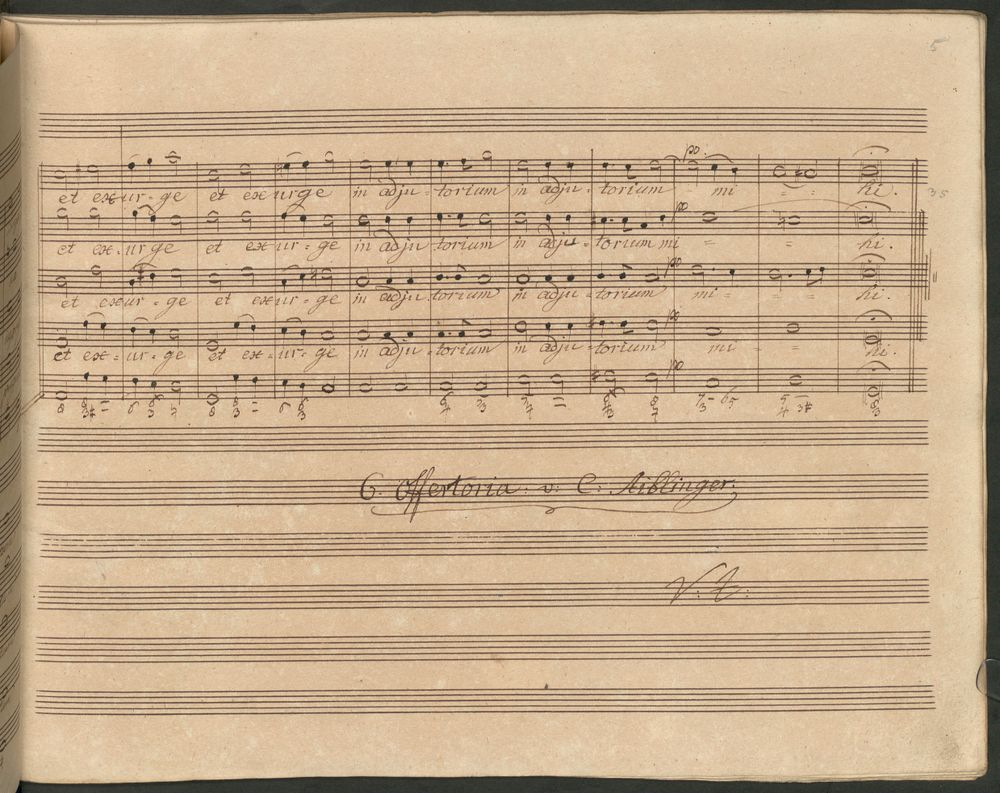 5
et exur-ge et exurge in adju-torium in adju-torium mi - - hi.
35
et ex-ur-ge et ex-ur-ge in adju-torium in adju-torium mi - - hi.
et exur-ge et exur-ge in adju-torium in adju-torium mi - - hi.
et ex-ur-ge et ex-ur-ge in adju-torium in adju-torium mi - - hi.
6. Offertoria v: C: Aiblinger.
V: t: